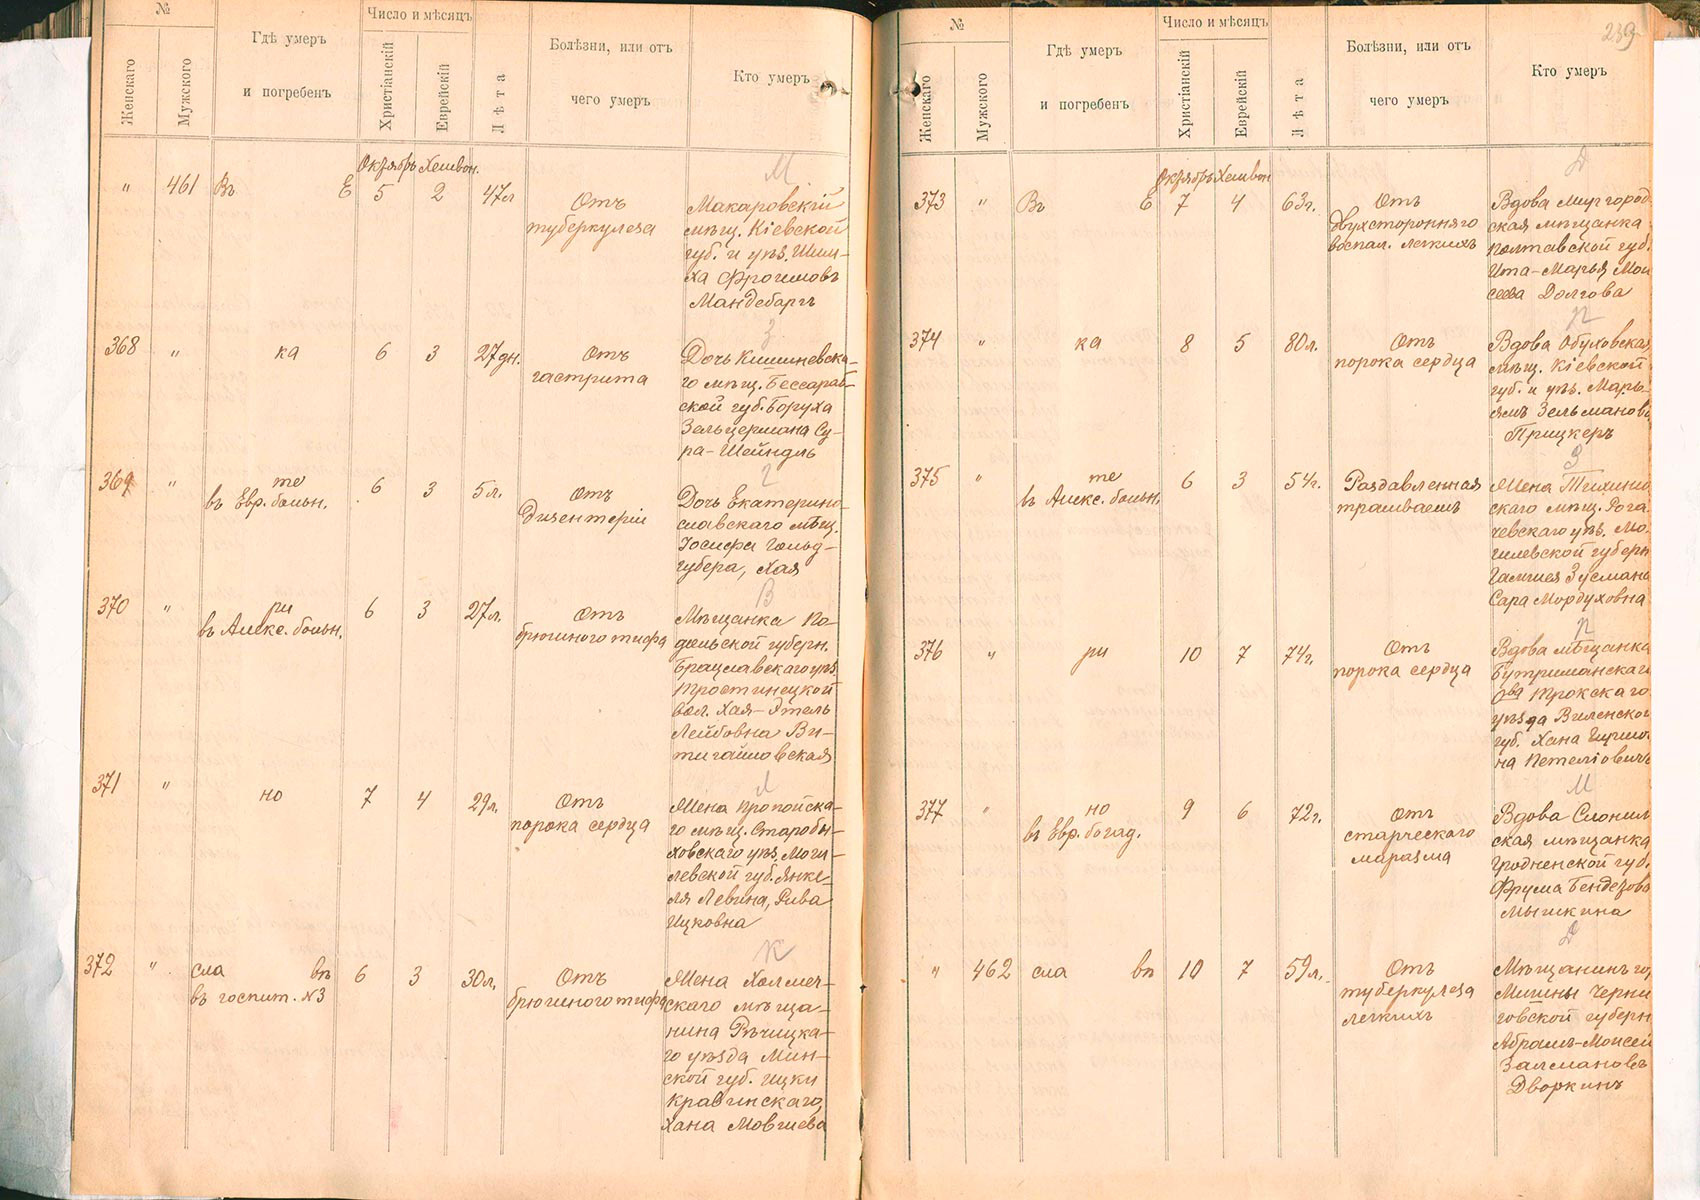 №
Число и мѣсяцъ
Женскаго
Мужского
Гдѣ умеръ
и погребенъ
Христіанскій
Еврейскій
Лѣта
Болѣзни, или отъ
чего умеръ
Кто умеръ
Октябрь Хешвон.
М
" 461 Въ Е 5 2 47л
Отъ
туберкулеза
Макаровскій
мѣщ. Кіевской
губ. и уѣз. Шли-
ха Фроимовъ
Мандебаргъ
З
368 " ка 6 3 27дн.
Отъ
гастрита
Дочь Кишиневска-
го мѣщ. Бессараб-
ской губ. Боруха
Зельцермана Су-
ра-Шейндль
Г
369 " те
въ Евр. больн.
6 3 5л.
Отъ
дизентеріи
Дочь Екатерино-
славскаго мѣщ.
Іосифа Гольд-
губера, Хая
В
370 " ри
въ Алекс. больн.
6 3 27л.
Отъ
брюшного тифа
Мѣщанка По-
дольской губерн.
Брацлавскаго уѣз.
Тростинецкой
вол. Хая-Этель
Лейбовна Ви-
тигайловская
Л
371 " но 7 4 29л.
Отъ
порока сердца
Жена Пропойска-
го мѣщ. Старобы-
ховскаго уѣз. Моги-
левской губ. Янке-
ля Левина, Рива
Ицковна
К
372 " сла въ
въ госпит. №3
6 3 30л.
Отъ
брюшного тифа
Жена Холмеч-
скаго мѣща-
нина Рѣчицка-
го уѣзда Мин-
ской губ. Ицки
Кравинскаго,
Хана Мовшева
239
№
Число и мѣсяцъ
Женскаго
Мужского
Гдѣ умеръ
и погребенъ
Христіанскій
Еврейскій
Лѣта
Болѣзни, или отъ
чего умеръ
Кто умеръ
Октябрь Хешвон
Д
373 " Въ Е 7 4 63г.
Отъ
двухсторонняго
воспал. легкихъ
Вдова Миргород
ская мѣщанка
Полтавской губ.
Ита-Марья Мои
сеева Долгова
П
374 " ка 8 5 80л.
Отъ
порока сердца
Вдова Обуховская
мѣщ. Кіевской
губ. и уѣз. Марь-
ямъ Зельманова
Прицкеръ
З
375 " те
въ Алекс. больн.
6 3 54г.
Раздавленная
трамваемъ
Жена Тихинич
скаго мѣщ. Рога
чевскаго уѣз. Мо-
гилевской губерн
Зусмана
Сара Мордуховна
П
376 " ри 10 7 74г.
Отъ
порока сердца
Вдова мѣщанка
Бутриманскаго
Трокскаго
уѣзда Виленской
губ. Хана Гиршо
на Петеліовичъ
М
377 " но
въ Евр. богад.
9 6 72г.
Отъ
старческаго
маразма
Вдова Слоним
ская мѣщанка
Гродненской губ.
Фрума
Мышкина
Д
" 462 сла въ 10 7 59л.
Отъ
туберкулеза
легкихъ
Мѣщанинъ го,
Мглины Черни
говской губерн
Абрамъ-Моисей
Залмановъ
Дворкинъ